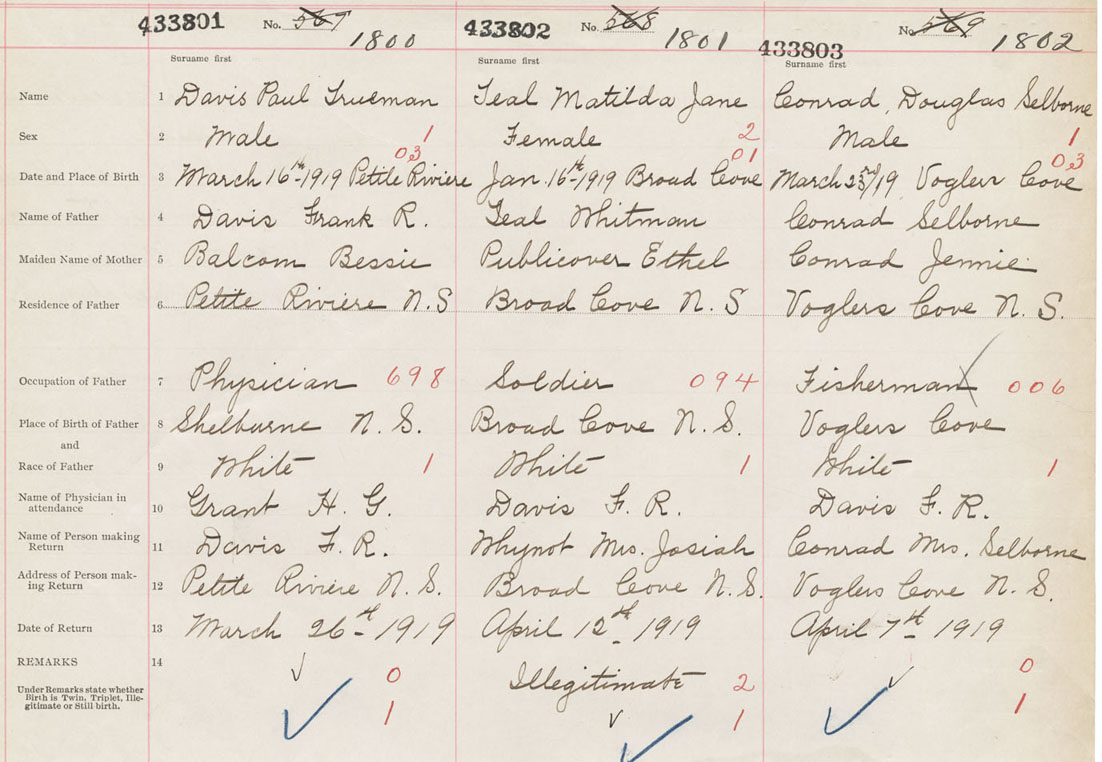 433801 No. 567 1800 433802 No. 568 1801 433803 No. 569 1802
Surname first Surname first Surname first
Name 1 Davis Paul Trueman Teal Matilda Jane Conrad, Douglas Selborne
Sex 2 Male 1 Female 2 Male 1
03 01 03
Date and Place of Birth 3 March 16th-1919 Petite Riviere Jan. 16th-1919 Broad Cove March 23rd/19, Voglers Cove
Name of Father 4 Davis Frank R. Teal Whitman Conrad Selborne
Maiden Name of Mother 5 Balcom Bessie Publicover Ethel Conrad Jennie
Residence of Father 6 Petite Riviere N.S Broad Cove N.S Voglers Cove N.S.
Occupation of Father 7 Physician 698 Soldier 094 Fisherman 006
Place of Birth of Father 8 Shelburne N.S. Broad Cove N.S. Voglers Cove
and
Race of Father 9 White 1 White 1 White 1
Name of Physician in
attendance 10 Grant H. G. Davis F. R. Davis F. R.
Name of Person making
Return 11 Davis F. R. Whynot Mrs. Josiah Conrad Mrs. Selborne
Address of Person mak-
ing Return 12 Petite Riviere N.S. Broad Cove N.S. Voglers Cove N.S.
Date of Return 13 March 26th-1919 April 12th 1919 April 7th 1919
REMARKS 14 0 Illegitimate 2 0
Under Remarks state whether
Birth is Twin, Triplet, Ille-
gitimate or Still birth.
1 1 1